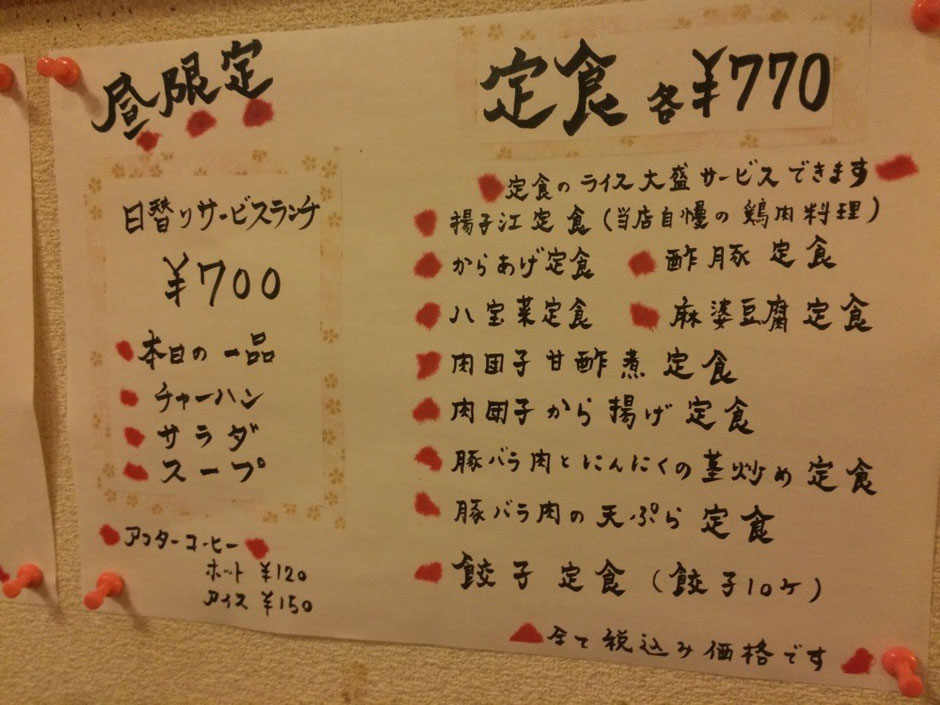 昼限定
日替りサービスランチ
¥700
本日の一品
チャーハン
サラダ
スープ
アフターコーヒー
ホット ¥120
アイス ¥150
定食 各¥770
定食のライス大盛サービスできます
揚子江定食(当店自慢の鶏肉料理)
からあげ定食 酢豚定食
八宝菜定食 麻婆豆腐定食
肉団子甘酢煮定食
肉団子から揚げ定食
豚バラ肉とにんにくの茎炒め定食
豚バラ肉の天ぷら定食
餃子定食(餃子10ケ)
全て税込み価格です